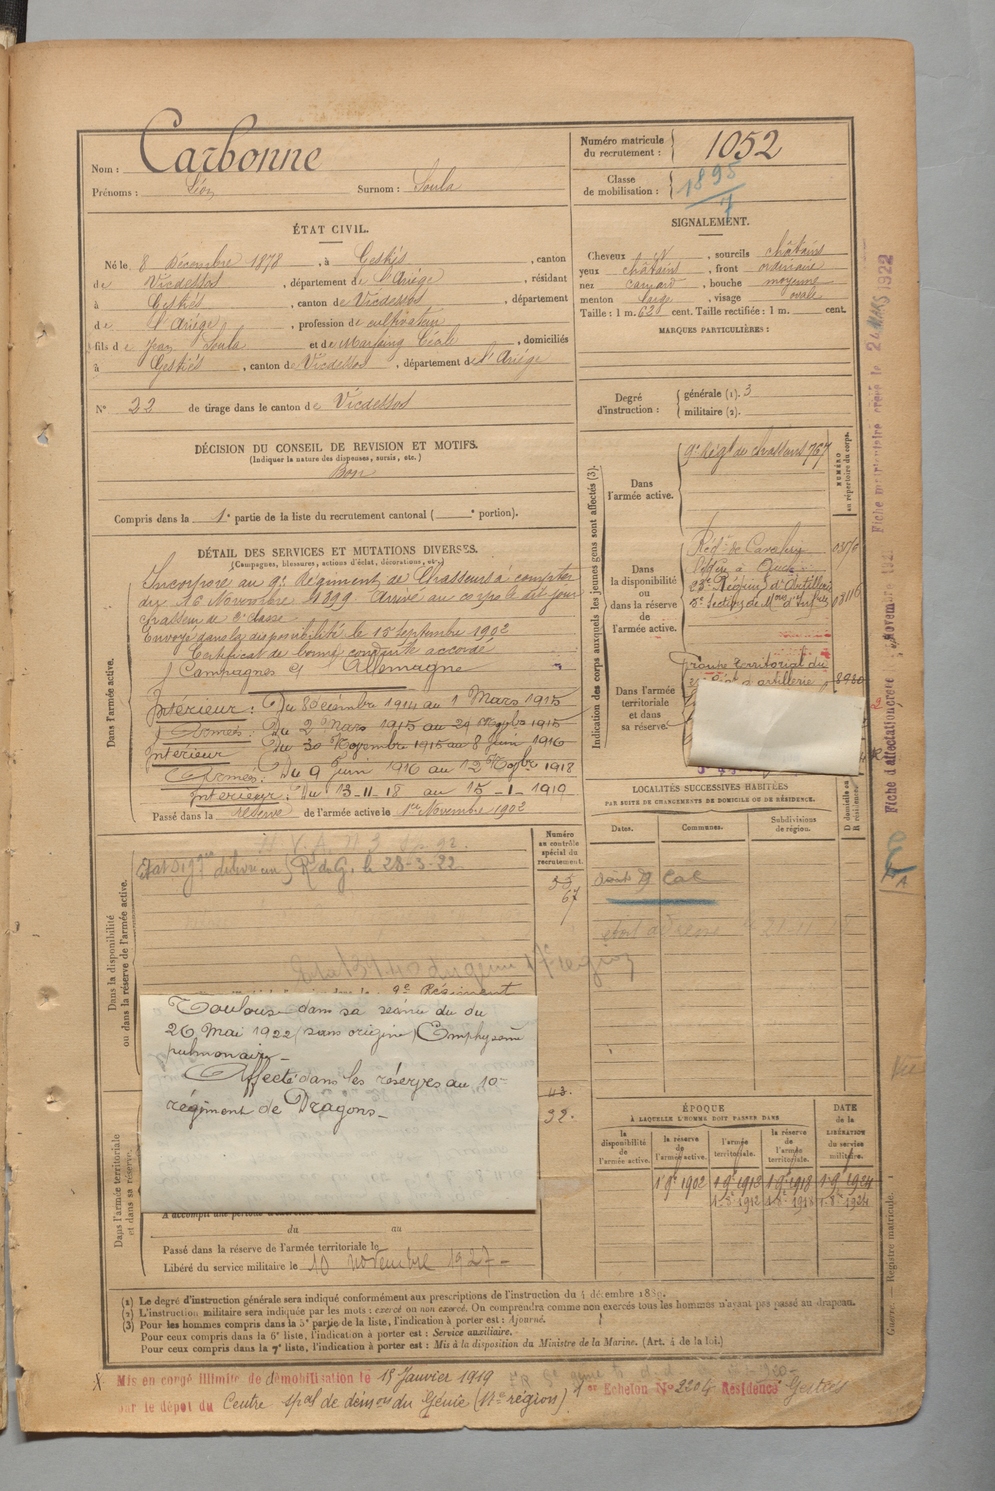 Nom : Carbonne
Prénoms : Léon Surnom : Soula
Numéro matricule du recrutement : 1052
Classe de mobilisation : 1895/7
ÉTAT CIVIL.
Né le 8 Décembre 1878, à Gestiès, canton
de Vicdessos, département de l'Ariège, résidant
à Gestiès, canton de Vicdessos, département
de l'Ariège, profession de cultivateur
fils de Jean Soula et de Marfaing Cécile, domiciliés
à Gestiès, canton de Vicdessos, département de l'Ariège
N° 22 de tirage dans le canton de Vicdessos
SIGNALEMENT.
Cheveux , sourcils châtains
yeux châtains, front ordinaire
nez camard, bouche moyenne
menton large, visage ovale
Taille : 1 m. 620 cent. Taille rectifiée : 1 m. cent.
MARQUES PARTICULIÈRES :
Degré d'instruction : générale (1). 3
militaire (2).
DÉCISION DU CONSEIL DE REVISION ET MOTIFS.
(Indiquer la nature des dispenses, sursis, etc.)
Bon
Compris dans la 1e partie de la liste du recrutement cantonal ( e portion).
DÉTAIL DES SERVICES ET MUTATIONS DIVERSES.
(Campagnes, blessures, actions d'éclat, décorations, etc.)
Dans l'armée active.
Incorporé au 9e Régiment de Chasseurs à compter
du 16 Novembre 1899. Arrivé au corps le dit jour
chasseur de 2e classe
Envoyé dans la disponibilité le 15 Septembre 1902
Certificat de bonne conduite accordé
Campagnes c/ Allemagne
Intérieur : Du 8 Décembre 1914 au 1 Mars 1915
Armées : Du 2 Mars 1915 au 29 Novbre 1915
Intérieur Du 30 Novembre 1915 au 8 Juin 1916
Armées : Du 9 Juin 1916 au 12 Novbre 1918
Intérieur : Du 13-11-18 au 15-1-1919
Passé dans la réserve de l'armée active le 1er Novembre 1902
Indication des corps auxquels les jeunes gens sont affectés (3).
NUMÉRO au répertoire du corps.
Dans l'armée active.
9e Régt de chasseurs 767
Dans la disponibilité ou dans la réserve de l'armée active.
Régt de Cavalerie
23e Régim d'Artillerie
Dans l'armée territoriale et dans sa réserve.
Groupe territorial du
d'artillerie
LOCALITÉS SUCCESSIVES HABITÉES
PAR SUITE DE CHANGEMENTS DE DOMICILE OU DE RÉSIDENCE.
Dates. Communes. Subdivisions de région. D domicile ou R résidence.
Numéro au contrôle spécial du recrutement.
55
67
Dans la disponibilité ou dans la réserve de l'armée active.
R. de G. le 28-3-22
9e Régiment
Toulouse dans sa séance du du
26 Mai 1922 (sans origine) Emphysème
pulmonaire
Affecté dans les réserves au 10e
régiment de Dragons
43.
32.
Dans l'armée territoriale et dans sa réserve.
A accompli une période d'exercices
du au
Passé dans la réserve de l'armée territoriale le
Libéré du service militaire le 10 novembre 1927
ÉPOQUE
À LAQUELLE L'HOMME DOIT PASSER DANS
la disponibilité de l'armée active. la réserve de l'armée active. l'armée territoriale. la réserve de l'armée territoriale.
DATE de la LIBÉRATION du service militaire.
1 9e 1902 1 9e 1918 1 9e 1924
(1) Le degré d'instruction générale sera indiqué conformément aux prescriptions de l'instruction du 4 décembre 1889.
(2) L'instruction militaire sera indiquée par les mots : exercé ou non exercé. On comprendra comme non exercés tous les hommes n'ayant pas passé au drapeau.
(3) Pour les hommes compris dans la 5e partie de la liste, l'indication à porter est : Ajourné.
Pour ceux compris dans la 6e liste, l'indication à porter est : Service auxiliaire.
Pour ceux compris dans la 7e liste, l'indication à porter est : Mis à la disposition du Ministre de la Marine. (Art. 4 de la loi.)
Mis en congé illimité de démobilisation le 15 Janvier 1919 Echelon N° 2204 Résidence Gestiès
par le dépôt du Centre spal de démon du Génie (17e région)
Fiche matriculaire créée le 24 MARS 1922
Fiche d'affectation créée Novembre 192
Guerre. — Registre matricule.